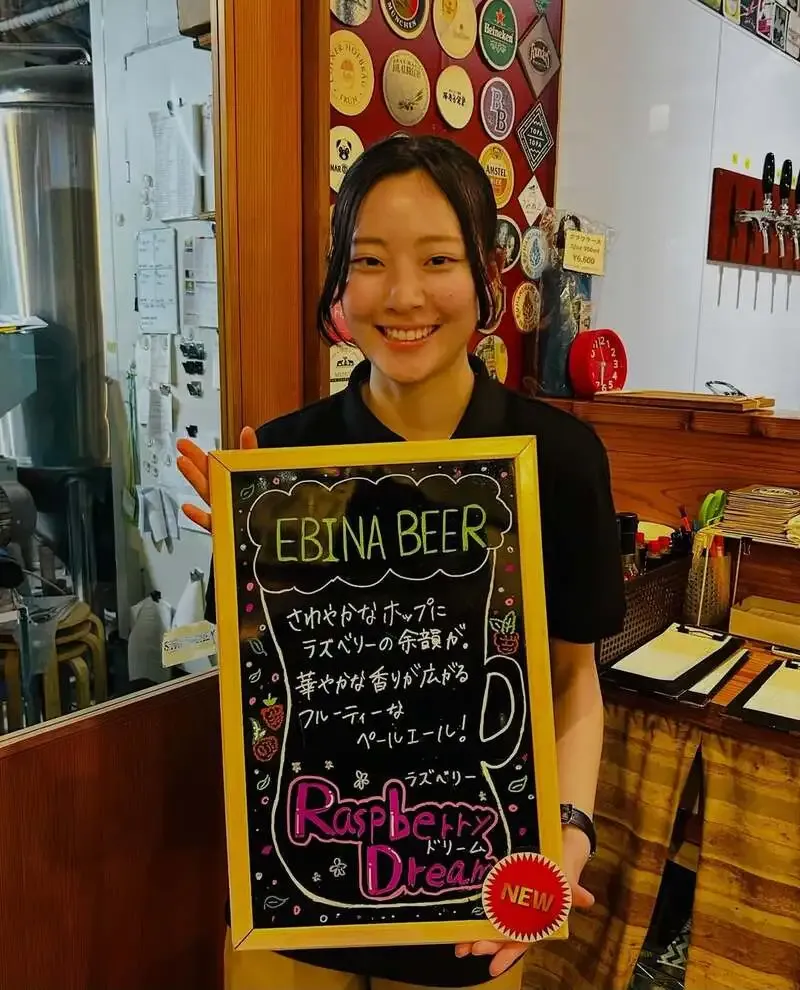 MÜNCHEN
Heineken
FRÜH
BB
AMSTEL
TOPA
TOPA
¥6,600
EBINA BEER
さわやかなホップに
ラズベリーの余韻が。
華やかな香りが広がる
フルーティーな
ペールエール!
ラズベリー
Raspberry
ドリーム
Dream
NEW